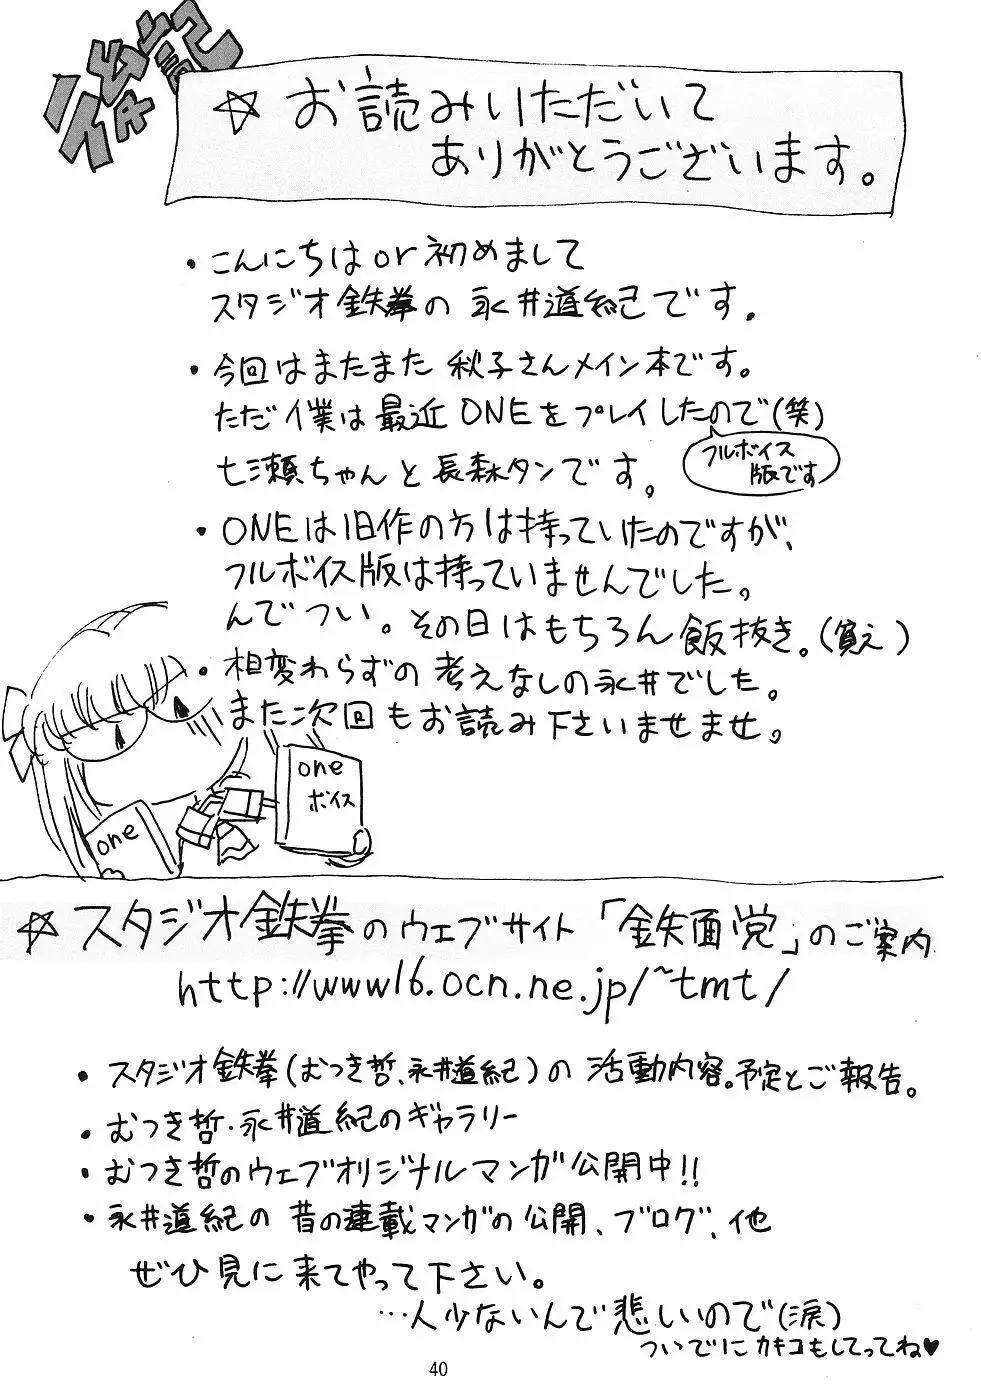 後記
☆お読みいただいて
ありがとうございます。
・こんにちはor初めまして
スタジオ鉄拳の永井道紀です。
・今回はまたまた秋子さんメイン本です。
ただ僕は最近ONEをプレイしたので(笑)
フルボイス
版です
七瀬ちゃんと長森タンです。
・ONEは旧作の方は持っていたのですが、
フルボイス版は持っていませんでした。
んでつい。その日はもちろん飯抜き。(貧え)
・相変わらずの考えなしの永井でした。
また次回もお読み下さいませませ。
one
ボイス
one
☆スタジオ鉄拳のウェブサイト「鉄面党」のご案内
http://www16.ocn.ne.jp/~tmt/
・スタジオ鉄拳(むつき哲、永井道紀)の活動内容。予定とご報告。
・むつき哲・永井道紀のギャラリー
・むつき哲のウェブオリジナルマンガ公開中!!
・永井道紀の昔の連載マンガの公開、ブログ、他
ぜひ見に来てやって下さい。
…人少ないんで悲しいので(涙)
ついでにカキコもしてってね♥
40